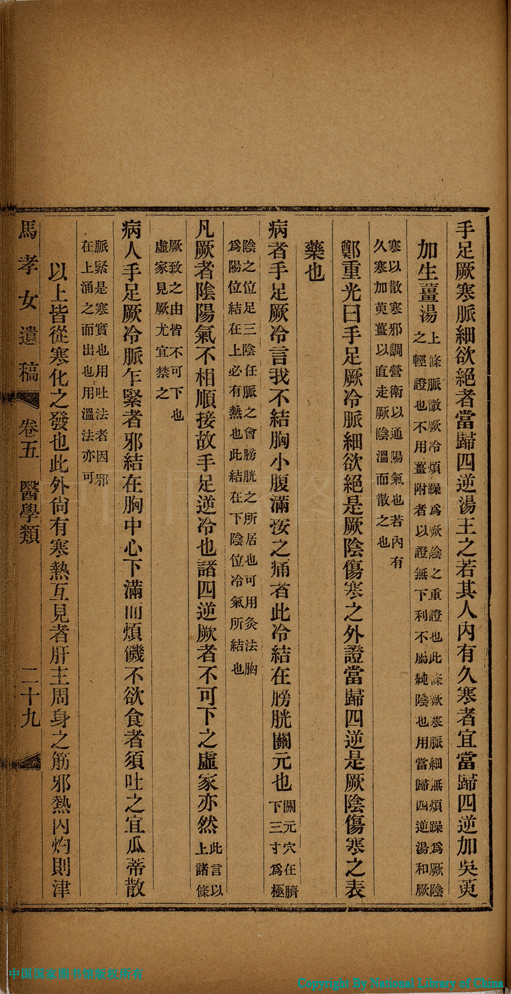 手足厥寒脈細欲絕者當歸四逆湯王之若其人內有久寒者宜當歸四逆加吳萸
加生薑湯
上條脈微厥冷煩躁爲厥陰之重證也此條厥寒脈細無煩躁爲厥陰
之輕證也不用薑附者以證無下利不屬純陰也用當歸四逆湯和厥
寒以散寒邪調營衛以通陽氣也若內有
久寒加萸薑以直走厥陰溫而散之也
鄭重光曰手足厥冷脈細欲絕是厥陰傷寒之外證當歸四逆是厥陰傷寒之表
藥也
病者手足厥冷言我不結胸小腹滿按之痛者此冷結在膀胱關元也
關元穴在臍
下三寸爲極
陰之位足三陰任脈之會膀胱之所居也可用灸法胸
爲陽位結在上必有熱也此結在下陰位冷氣所結也
凡厥者陰陽氣不相順接故手足逆冷也諸四逆厥者不可下之虛家亦然
此言以
上諸條
厥致之由皆不可下也
虛家見厥尤宜禁之
病人手足厥冷脈乍緊者邪結在胸中心下滿而煩饑不欲食者須吐之宜瓜蒂散
脈緊是寒實也用吐法者因邪
在上涌之而出也用溫法亦可
以上皆從寒化之發也此外尙有寒熱互見者肝主周身之筋邪熱內灼則津
馬孝女遺稿
卷五
醫學類
二十九
中国国家图书馆版权所有
Copyright By National Library of China